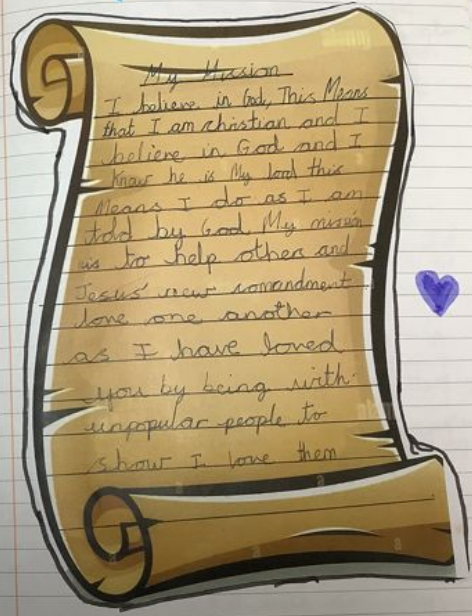 My Mission
I believe in God, This Means
that I am christian and I
believe in God and I
Know he is My lord this
Means I do as I am
told by God My mission
is to help others and
Jesus' new comandment
love one another
as I have loved
you by being with
unpopular people to
show I love them